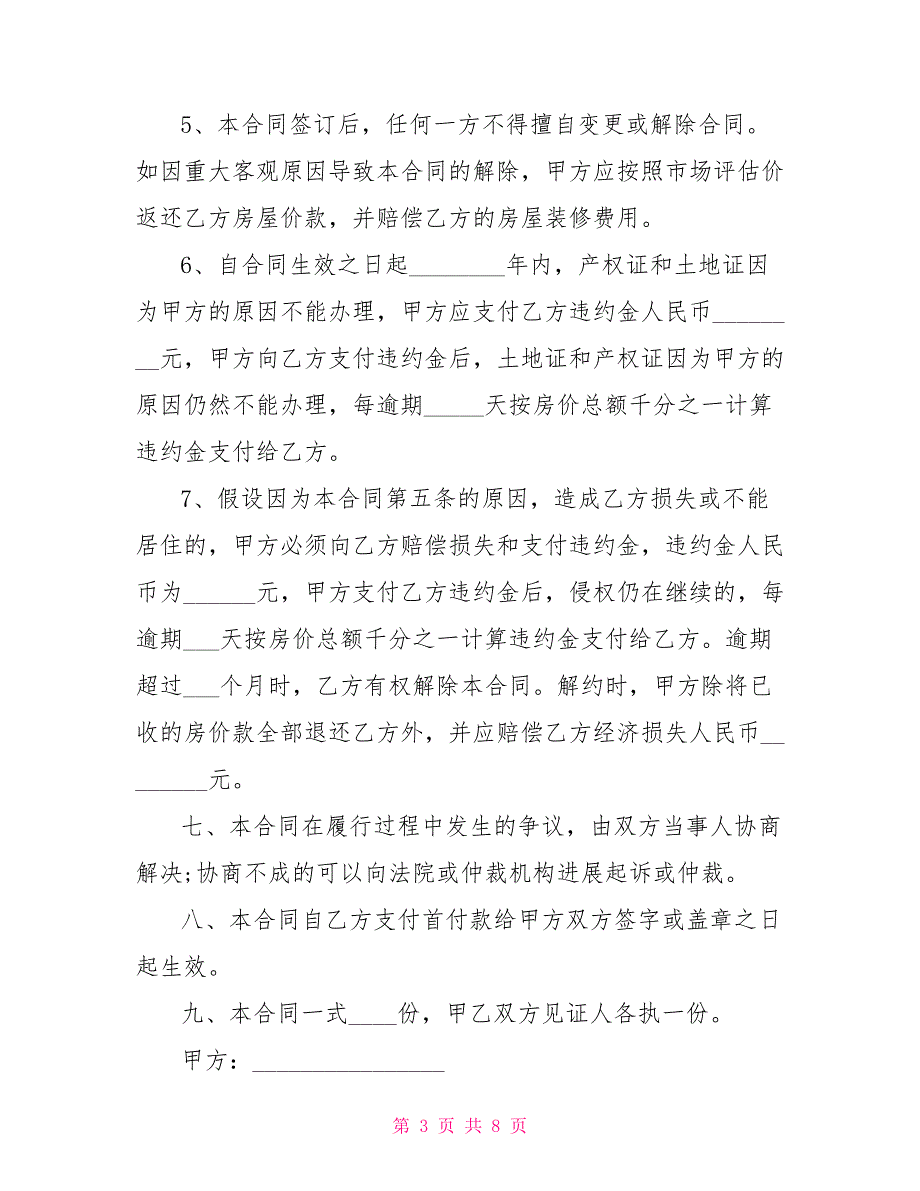 5、本合同签订后，任何一方不得擅自变更或解除合同。
如因重大客观原因导致本合同的解除，甲方应按照市场评估价
返还乙方房屋价款，并赔偿乙方的房屋装修费用。
6、自合同生效之日起________年内，产权证和土地证因
为甲方的原因不能办理，甲方应支付乙方违约金人民币______
__元，甲方向乙方支付违约金后，土地证和产权证因为甲方的
原因仍然不能办理，每逾期_____天按房价总额千分之一计算
违约金支付给乙方。
7、假设因为本合同第五条的原因，造成乙方损失或不能
居住的，甲方必须向乙方赔偿损失和支付违约金，违约金人民
币为______元，甲方支付乙方违约金后，侵权仍在继续的，每
逾期___天按房价总额千分之一计算违约金支付给乙方。逾期
超过___个月时，乙方有权解除本合同。解约时，甲方除将已
收的房价款全部退还乙方外，并应赔偿乙方经济损失人民币__
______元。
七、本合同在履行过程中发生的争议，由双方当事人协商
解决;协商不成的可以向法院或仲裁机构进展起诉或仲裁。
八、本合同自乙方支付首付款给甲方双方签字或盖章之日
起生效。
九、本合同一式____份，甲乙双方见证人各执一份。
甲方：________________
第 3 页 共 8 页